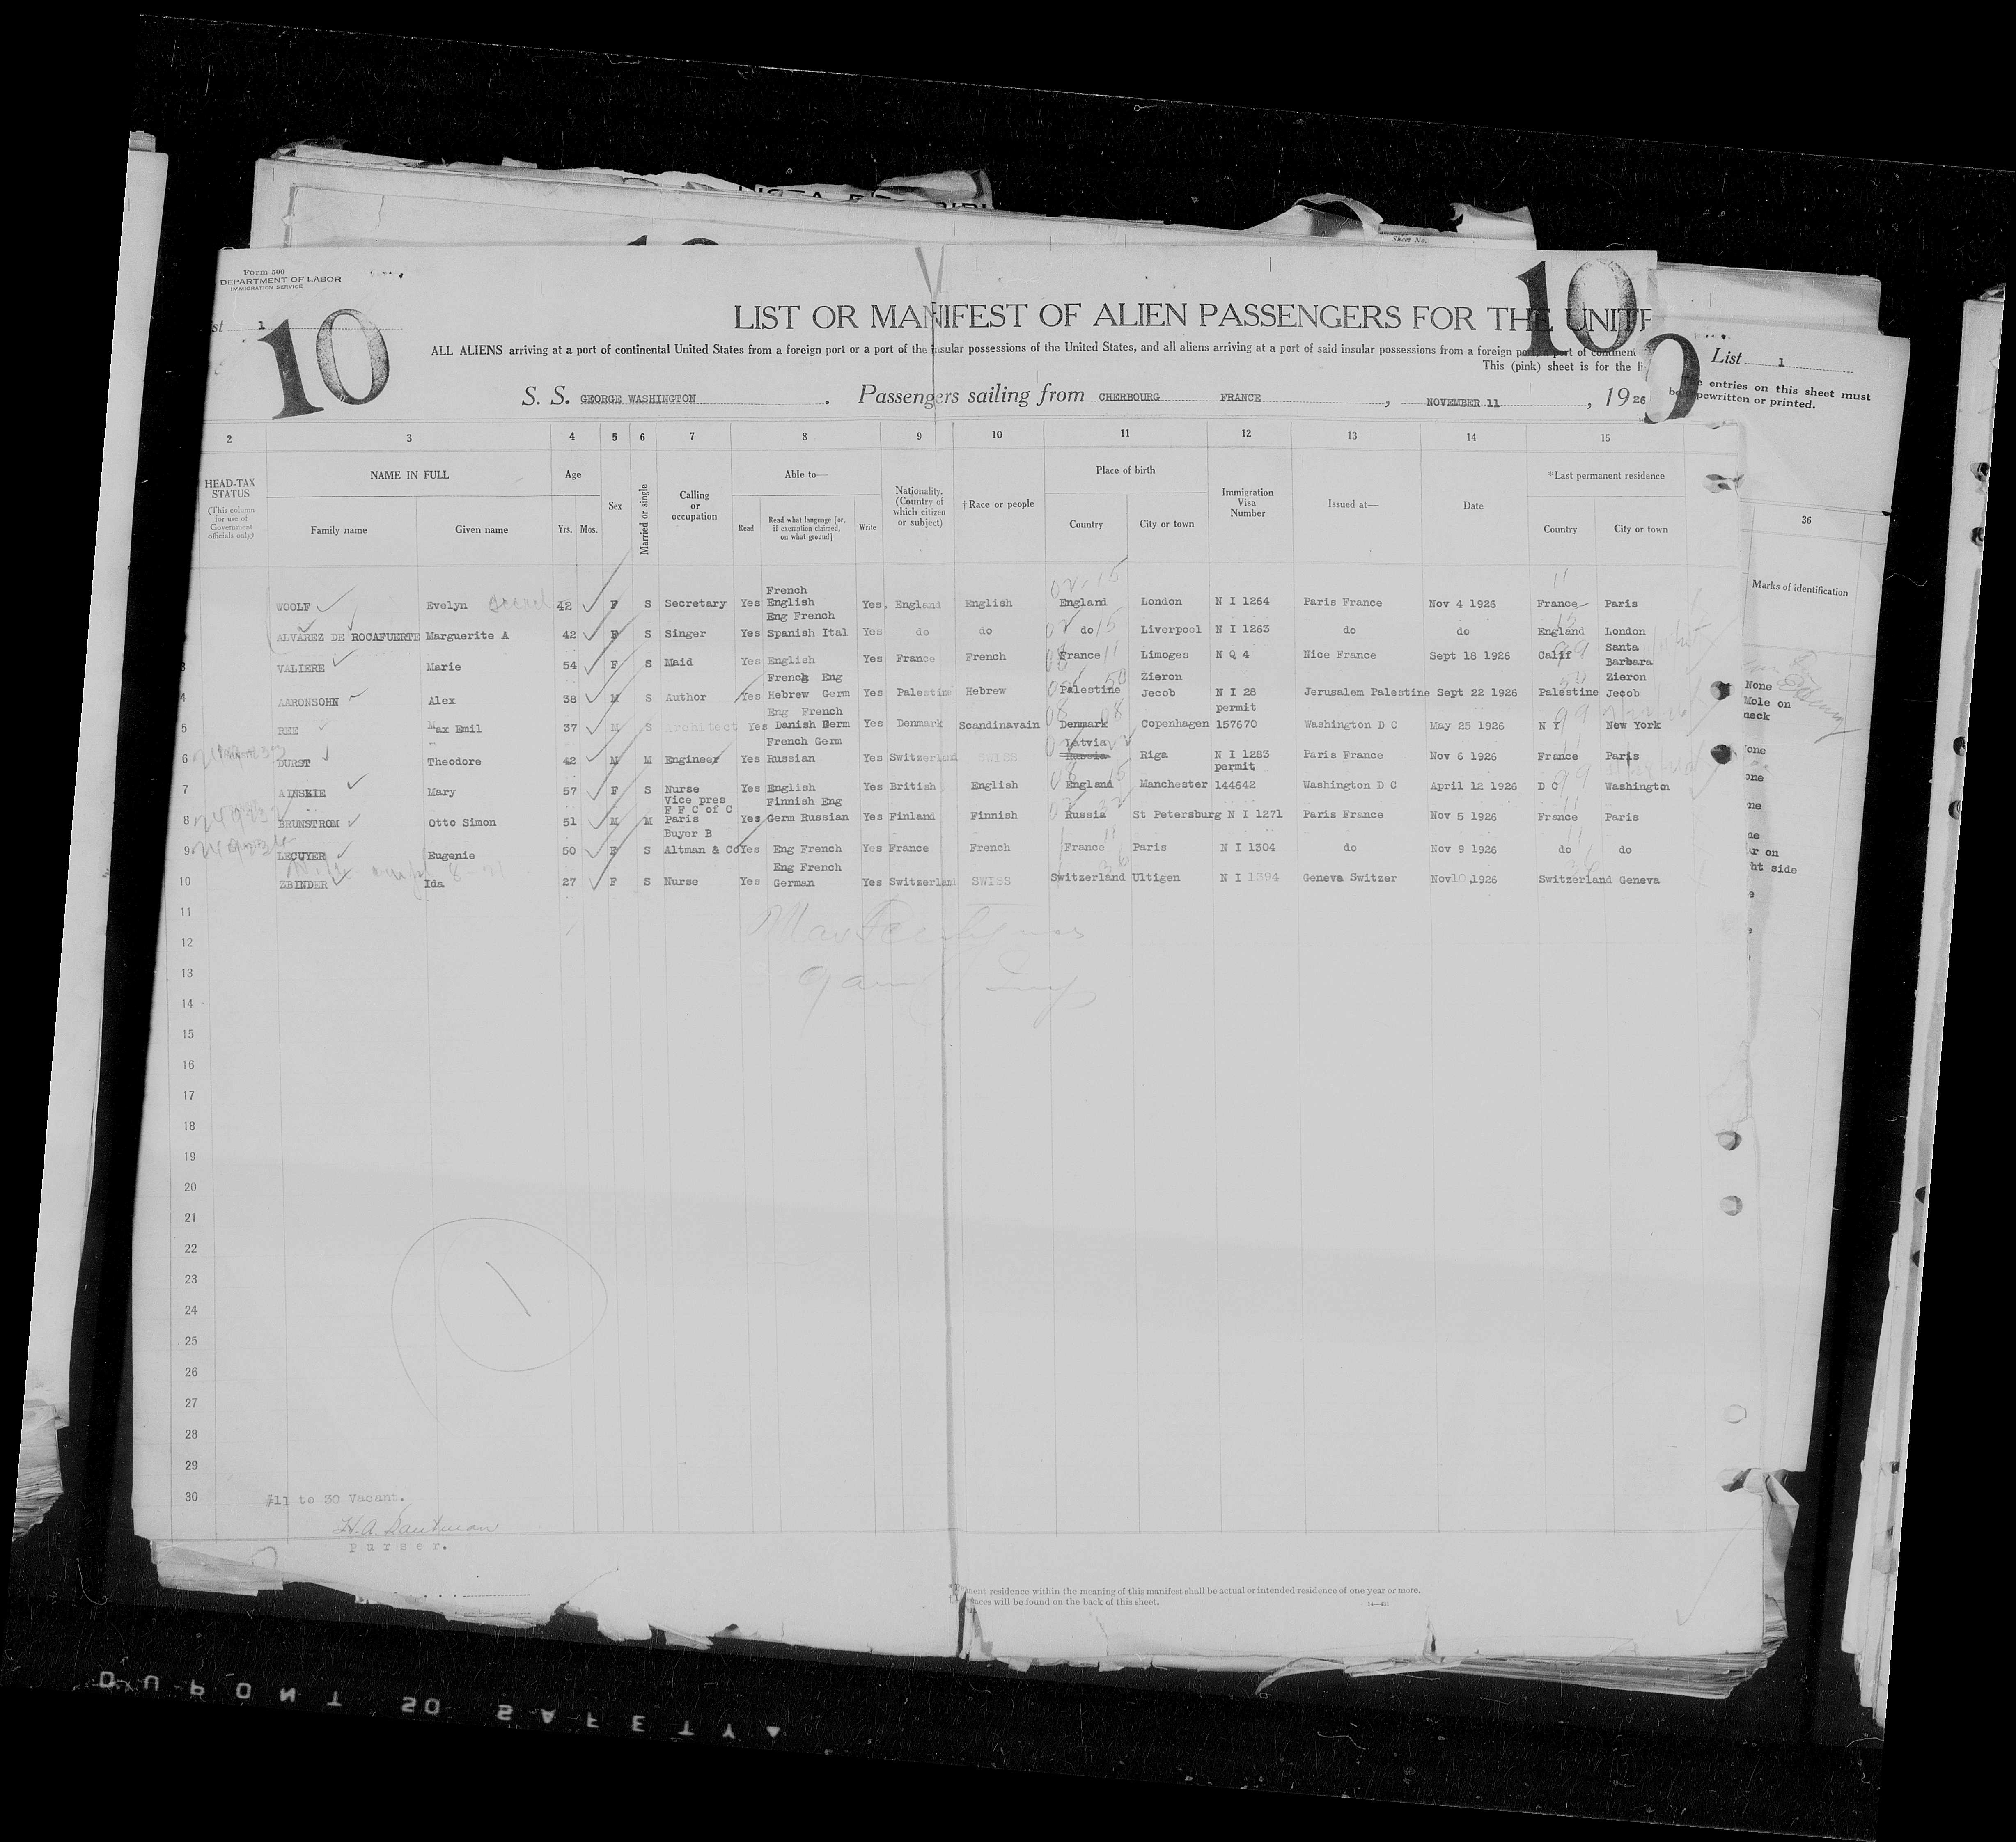 Sheet No.
Form 500
DEPARTMENT OF LABOR
IMMIGRATION SERVICE
st 1
10
10
LIST OR MANIFEST OF ALIEN PASSENGERS FOR THE UNITE
ALL ALIENS arriving at a port of continental United States from a foreign port or a port of the insular possessions of the United States, and all aliens arriving at a port of said insular possessions from a foreign port, a port of continent
This (pink) sheet is for the li
List 1
The entries on this sheet must
be typewritten or printed.
S. S. GEORGE WASHINGTON . Passengers sailing from CHERBOURG FRANCE , NOVEMBER 11 , 1926
2 3 4 5 6 7 8 9 10 11 12 13 14 15
36
HEAD-TAX STATUS (This column for use of Government officials only) NAME IN FULL Family name Given name Age Yrs. Mos. Sex Married or single Calling or occupation Able to— Read Read what language [or, if exemption claimed, on what ground] Write Nationality. (Country of which citizen or subject) †Race or people Place of birth Country City or town Immigration Visa Number Issued at— Date *Last permanent residence Country City or town
Marks of identification
WOOLF Evelyn 42 F S Secretary Yes French English Yes, England English England London N I 1264 Paris France Nov 4 1926 France Paris
ALVAREZ DE ROCAFUERTE Marguerite A 42 F S Singer Yes Eng French Spanish Ital Yes do do do Liverpool N I 1263 do do England London
3 VALIERE Marie 54 F S Maid Yes English Yes France French France Limoges N Q 4 Nice France Sept 18 1926 Calif Santa Barbara
4 AARONSOHN Alex 38 M S Author Yes French Eng Hebrew Germ Yes Palestine Hebrew Palestine Zieron Jecob N I 28 Jerusalem Palestine Sept 22 1926 Palestine Zieron Jecob
5 REE Max Emil 37 M S Architect Yes Eng French Danish Germ Yes Denmark Scandinavain Denmark Copenhagen permit 157670 Washington D C May 25 1926 N Y New York
6 DURST Theodore 42 M M Engineer Yes French Germ Russian Yes Switzerland SWISS Latvia Russia Riga N I 1283 Paris France Nov 6 1926 France Paris
7 AINSKIE Mary 57 F S Nurse Yes English Yes British English England Manchester permit 144642 Washington D C April 12 1926 D C Washington
8 BRUNSTROM Otto Simon 51 M M Vice pres F F C of C Paris Yes Finnish Eng Germ Russian Yes Finland Finnish Russia St Petersburg N I 1271 Paris France Nov 5 1926 France Paris
9 LECUYER Eugenie 50 F S Buyer B Altman & Co Yes Eng French Yes France French France Paris N I 1304 do Nov 9 1926 do do
10 ZBINDEN Ida 27 F S Nurse Yes Eng French German Yes Switzerland SWISS Switzerland Ultigen N I 1394 Geneva Switzer Nov 10,1926 Switzerland Geneva
None
Mole on
neck
11
12
13
14
15
16
17
18
19
20
21
22
23
24
25
26
27
28
29
30
#11 to 30 Vacant.
Purser.
residence within the meaning of this manifest shall be actual or intended residence of one year or more.
races will be found on the back of this sheet.
DUPONT SO SAFETY